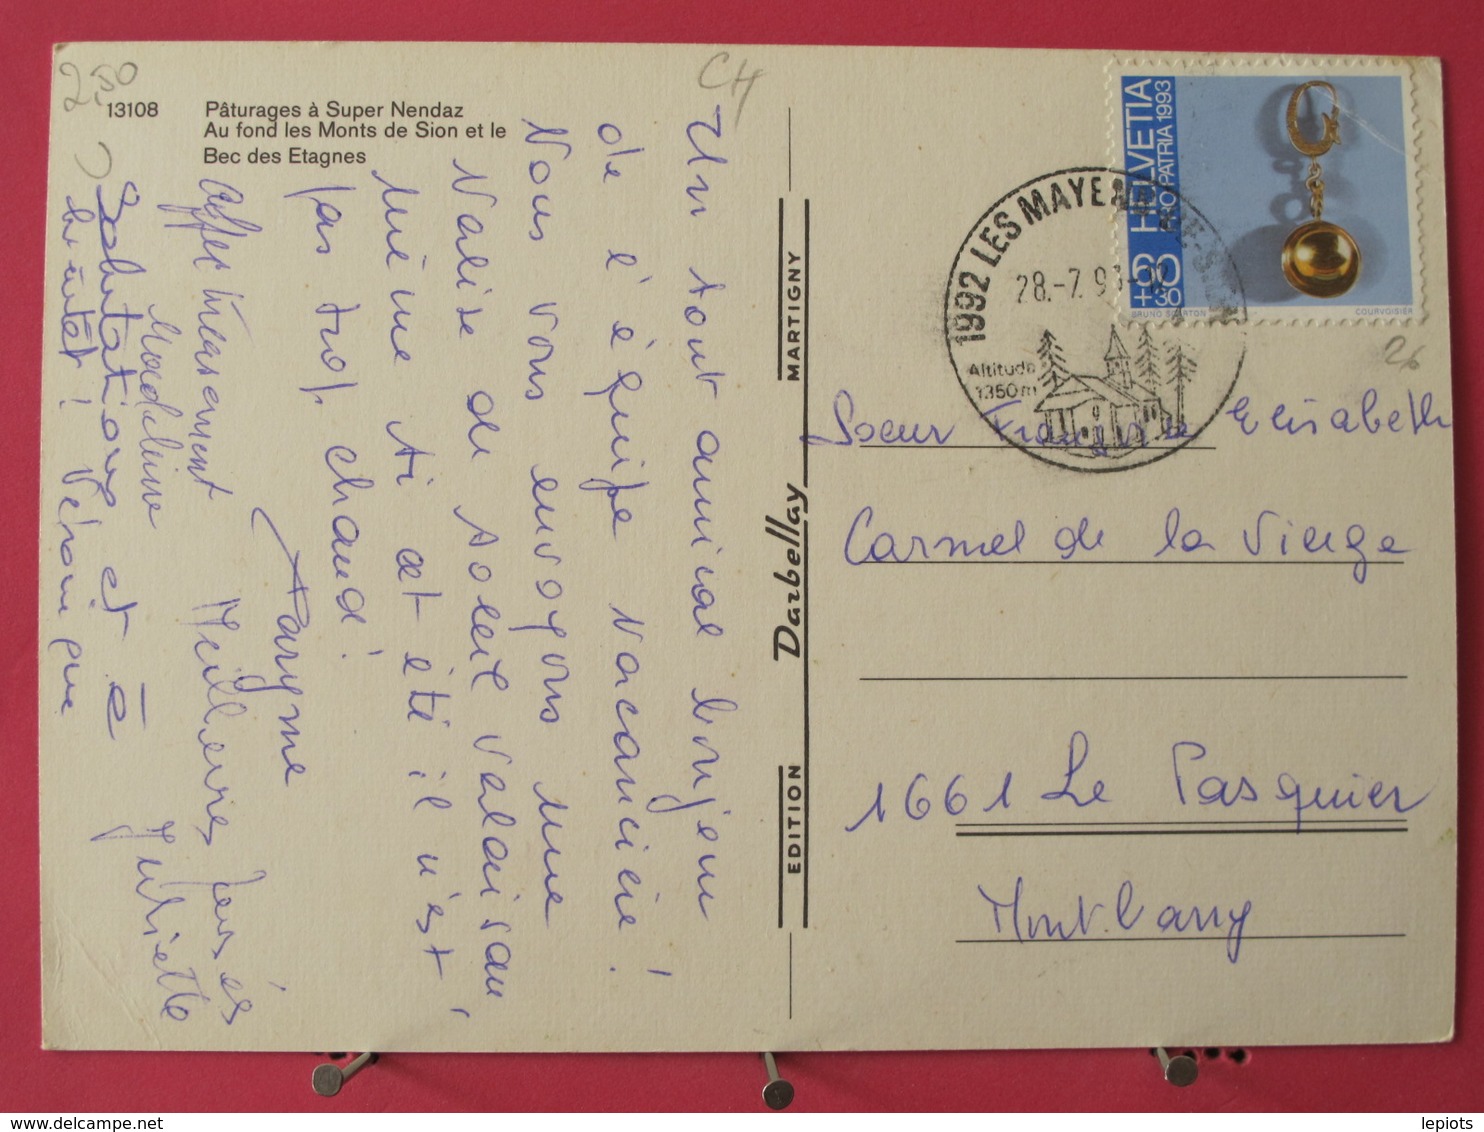 2,50
13108 Pâturages à Super Nendaz
Au fond les Monts de Sion et le
Bec des Etagnes
CH
Un tout amical bonjour
de l'équipe vacancière!
Nous vous envoyons une
valise de soleil valaisan
même si cet été il n'est
pas trop chaud!
Affectueusement
Madeleine
Meilleures pensées
Juliette
Salutations et à
bientôt! Véronique
EDITION Darbellay MARTIGNY
HELVETIA
PRO PATRIA 1993
80
+30
BRUNO SCARTON COURVOISIER
1992 LES MAYENS-DE-SION
28.-7.93-
Altitude
1350m
26
Soeur Elisabeth
Carmel de la Vierge
1661 Le Pasquier
Montbarry
lepiots